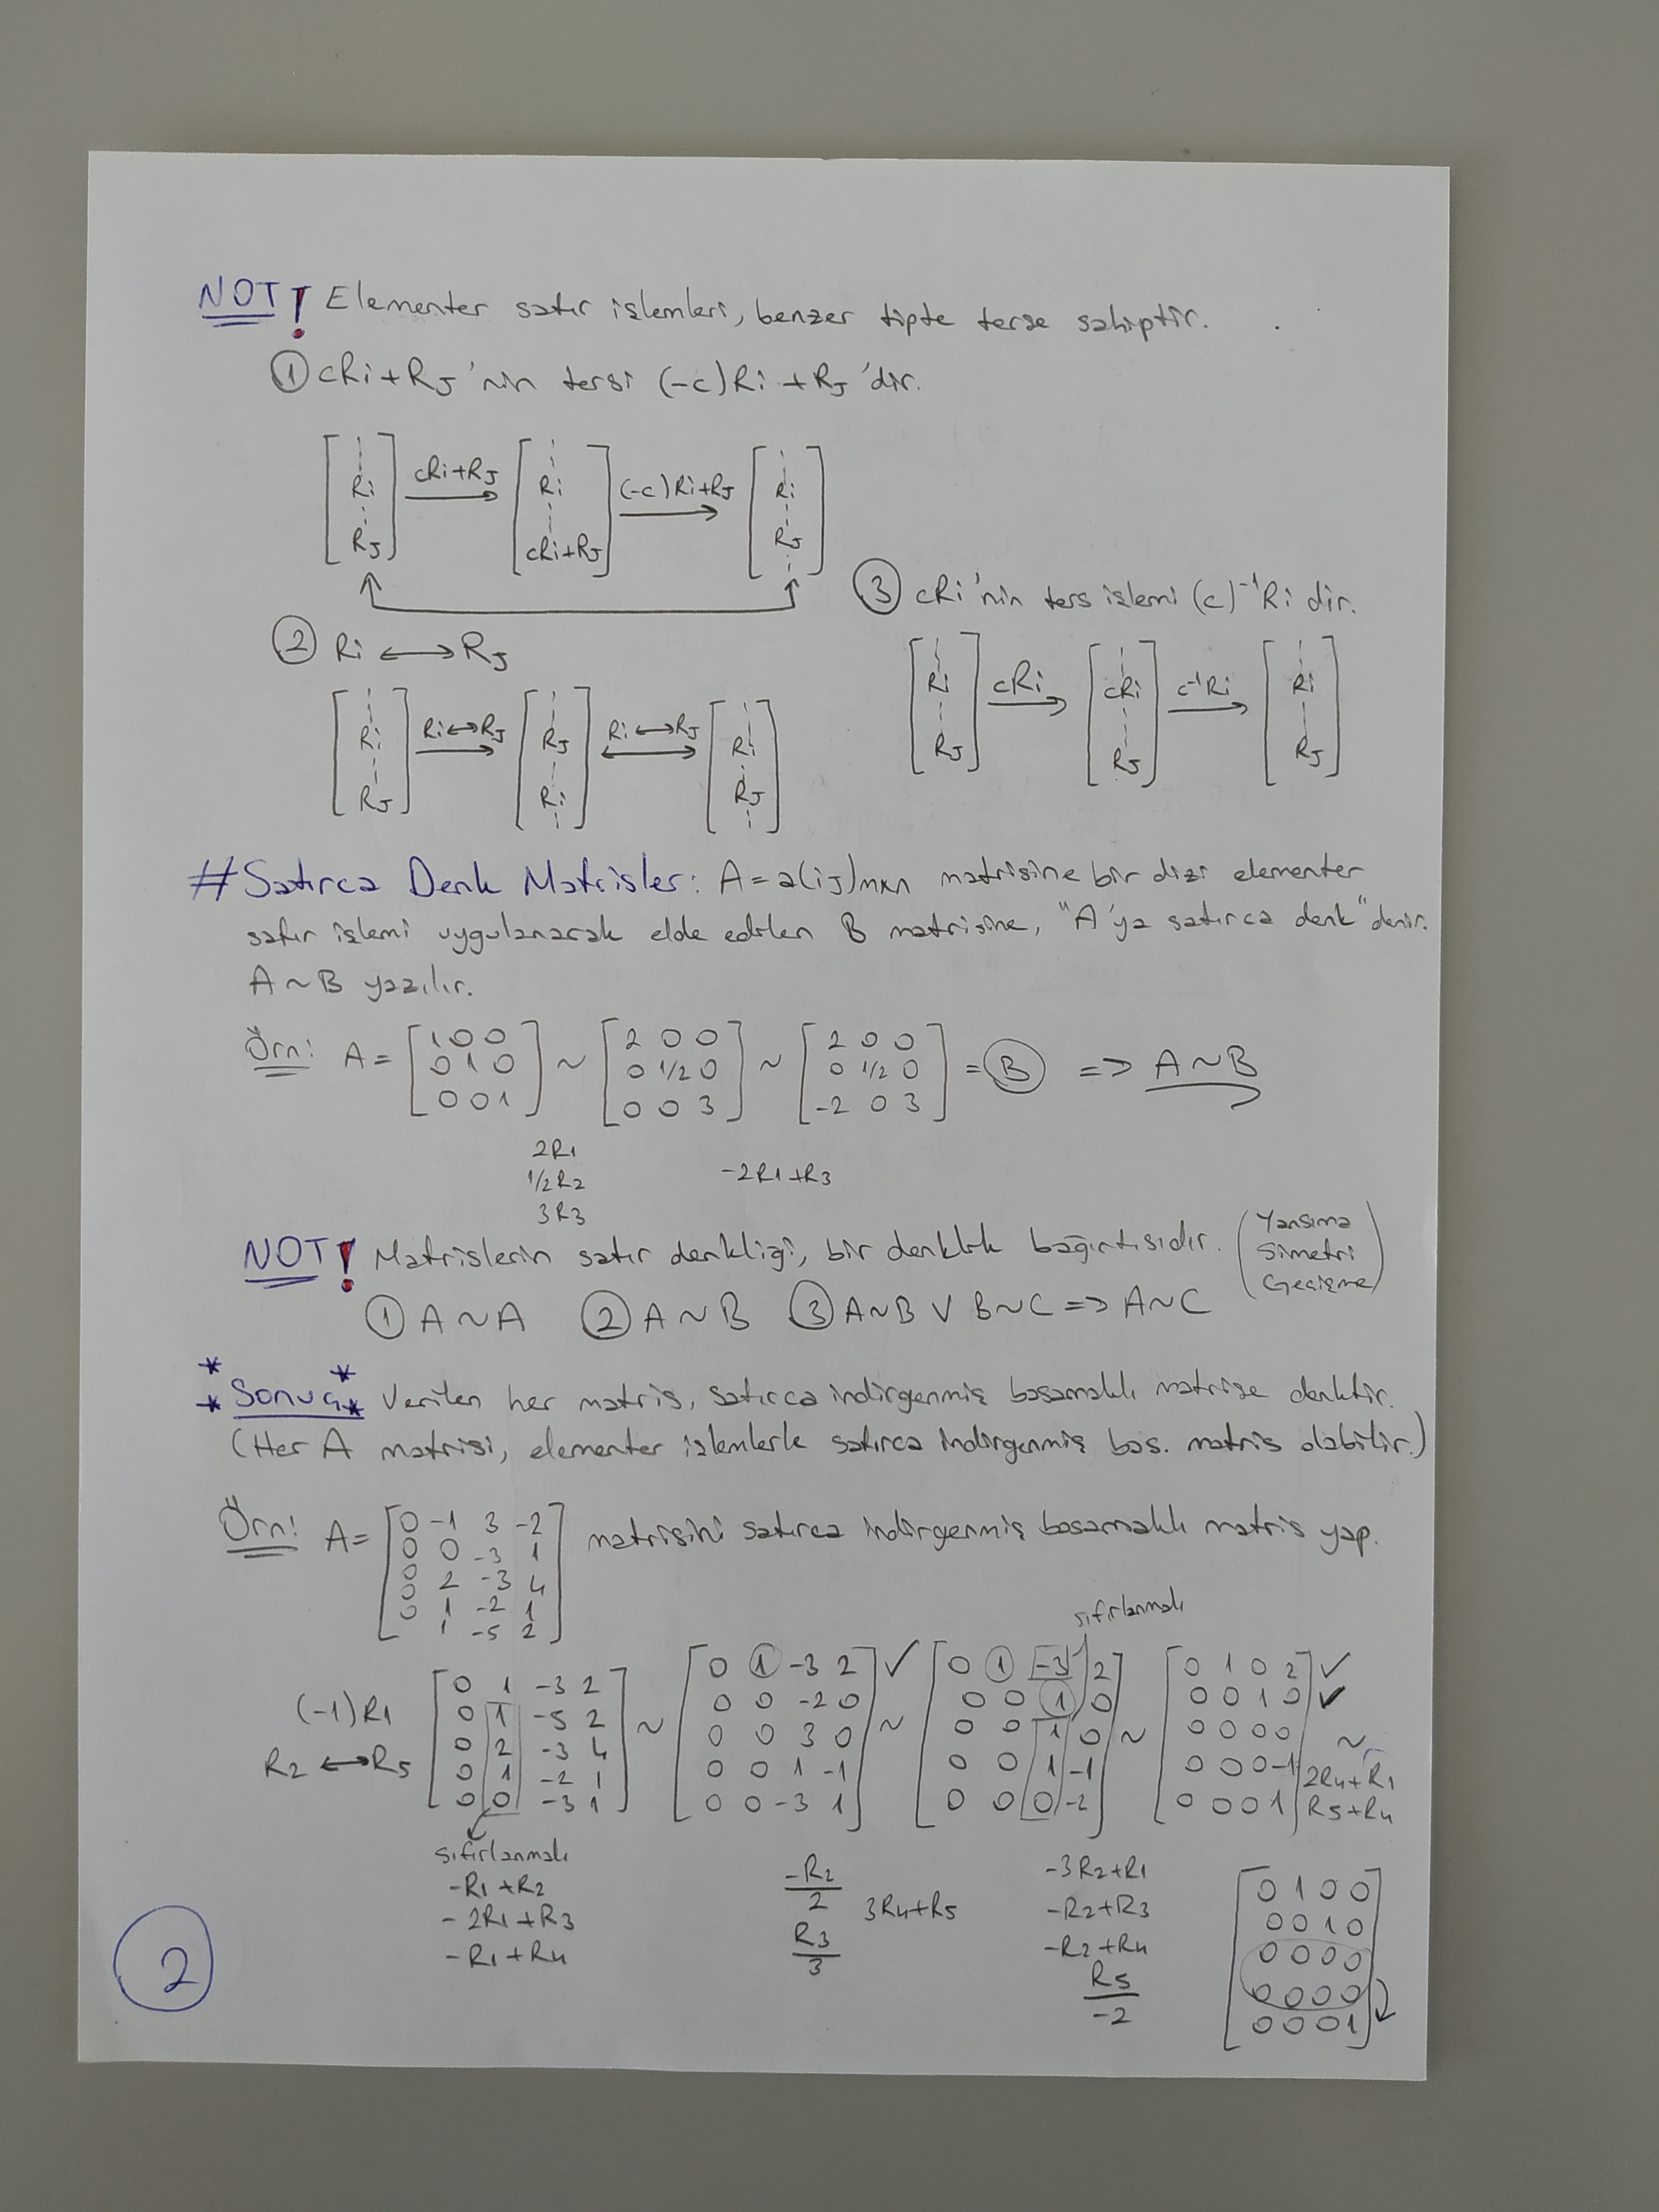 NOT! Elementer satır işlemleri, benzer tipte terse sahiptir.
① cRi+RJ'nin tersi (-c)Ri+RJ'dir.
[Ri RJ] cRi+RJ → [Ri cRi+RJ] (-c)Ri+RJ → [Ri RJ]
② Ri ↔ RJ
[Ri RJ] Ri↔RJ → [RJ Ri] Ri↔RJ → [Ri RJ]
③ cRi'nin ters işlemi (c)⁻¹Ri dir.
[Ri RJ] cRi → [cRi RJ] c⁻¹Ri → [Ri RJ]
# Satırca Denk Matrisler: A=a(ij)mxn matrisine bir dizi elementer
satır işlemi uygulanarak elde edilen B matrisine, "A'ya satırca denk" denir.
A~B yazılır.
Örn: A= [1 0 0
0 1 0
0 0 1] ~ [2 0 0
0 1/2 0
0 0 3] ~ [2 0 0
0 1/2 0
-2 0 3] = B => A~B
2R1
1/2R2
3R3
-2R1+R3
NOT! Matrislerin satır denkliği, bir denklik bağıntısıdır. (Yansıma
Simetri
Geçişme)
① A~A ② A~B ③ A~B ∨ B~C => A~C
*Sonuç* Verilen her matris, satırca indirgenmiş basamaklı matrise denktir.
(Her A matrisi, elementer işlemlerle satırca indirgenmiş bas. matris olabilir.)
Örn: A= [0 -1 3 -2
0 0 -3 1
0 2 -3 4
0 1 -5 2] matrisini satırca indirgenmiş basamaklı matris yap.
(-1)R1
R2 ↔ R5
[0 1 -3 2
0 1 -5 2
0 2 -3 4
0 1 -2 1
0 0 -3 1] ~ [0 1 -3 2
0 0 -2 0
0 0 3 0
0 0 1 -1
0 0 -3 1] ✓ ~ [0 1 -3 2
0 0 1 0
0 0 1 0
0 0 1 -1
0 0 0 -2] ~ [0 1 0 2
0 0 1 0
0 0 0 0
0 0 0 -1
0 0 0 1] ✓ ~
sıfırlanmalı
sıfırlanmalı
-R1+R2
-2R1+R3
-R1+R4
-R2/2
R3/3
3R4+R5
-3R2+R1
-R2+R3
-R2+R4
R5/-2
2R4+R1
R5+R4
[0 1 0 0
0 0 1 0
0 0 0 0
0 0 0 0
0 0 0 1]
2